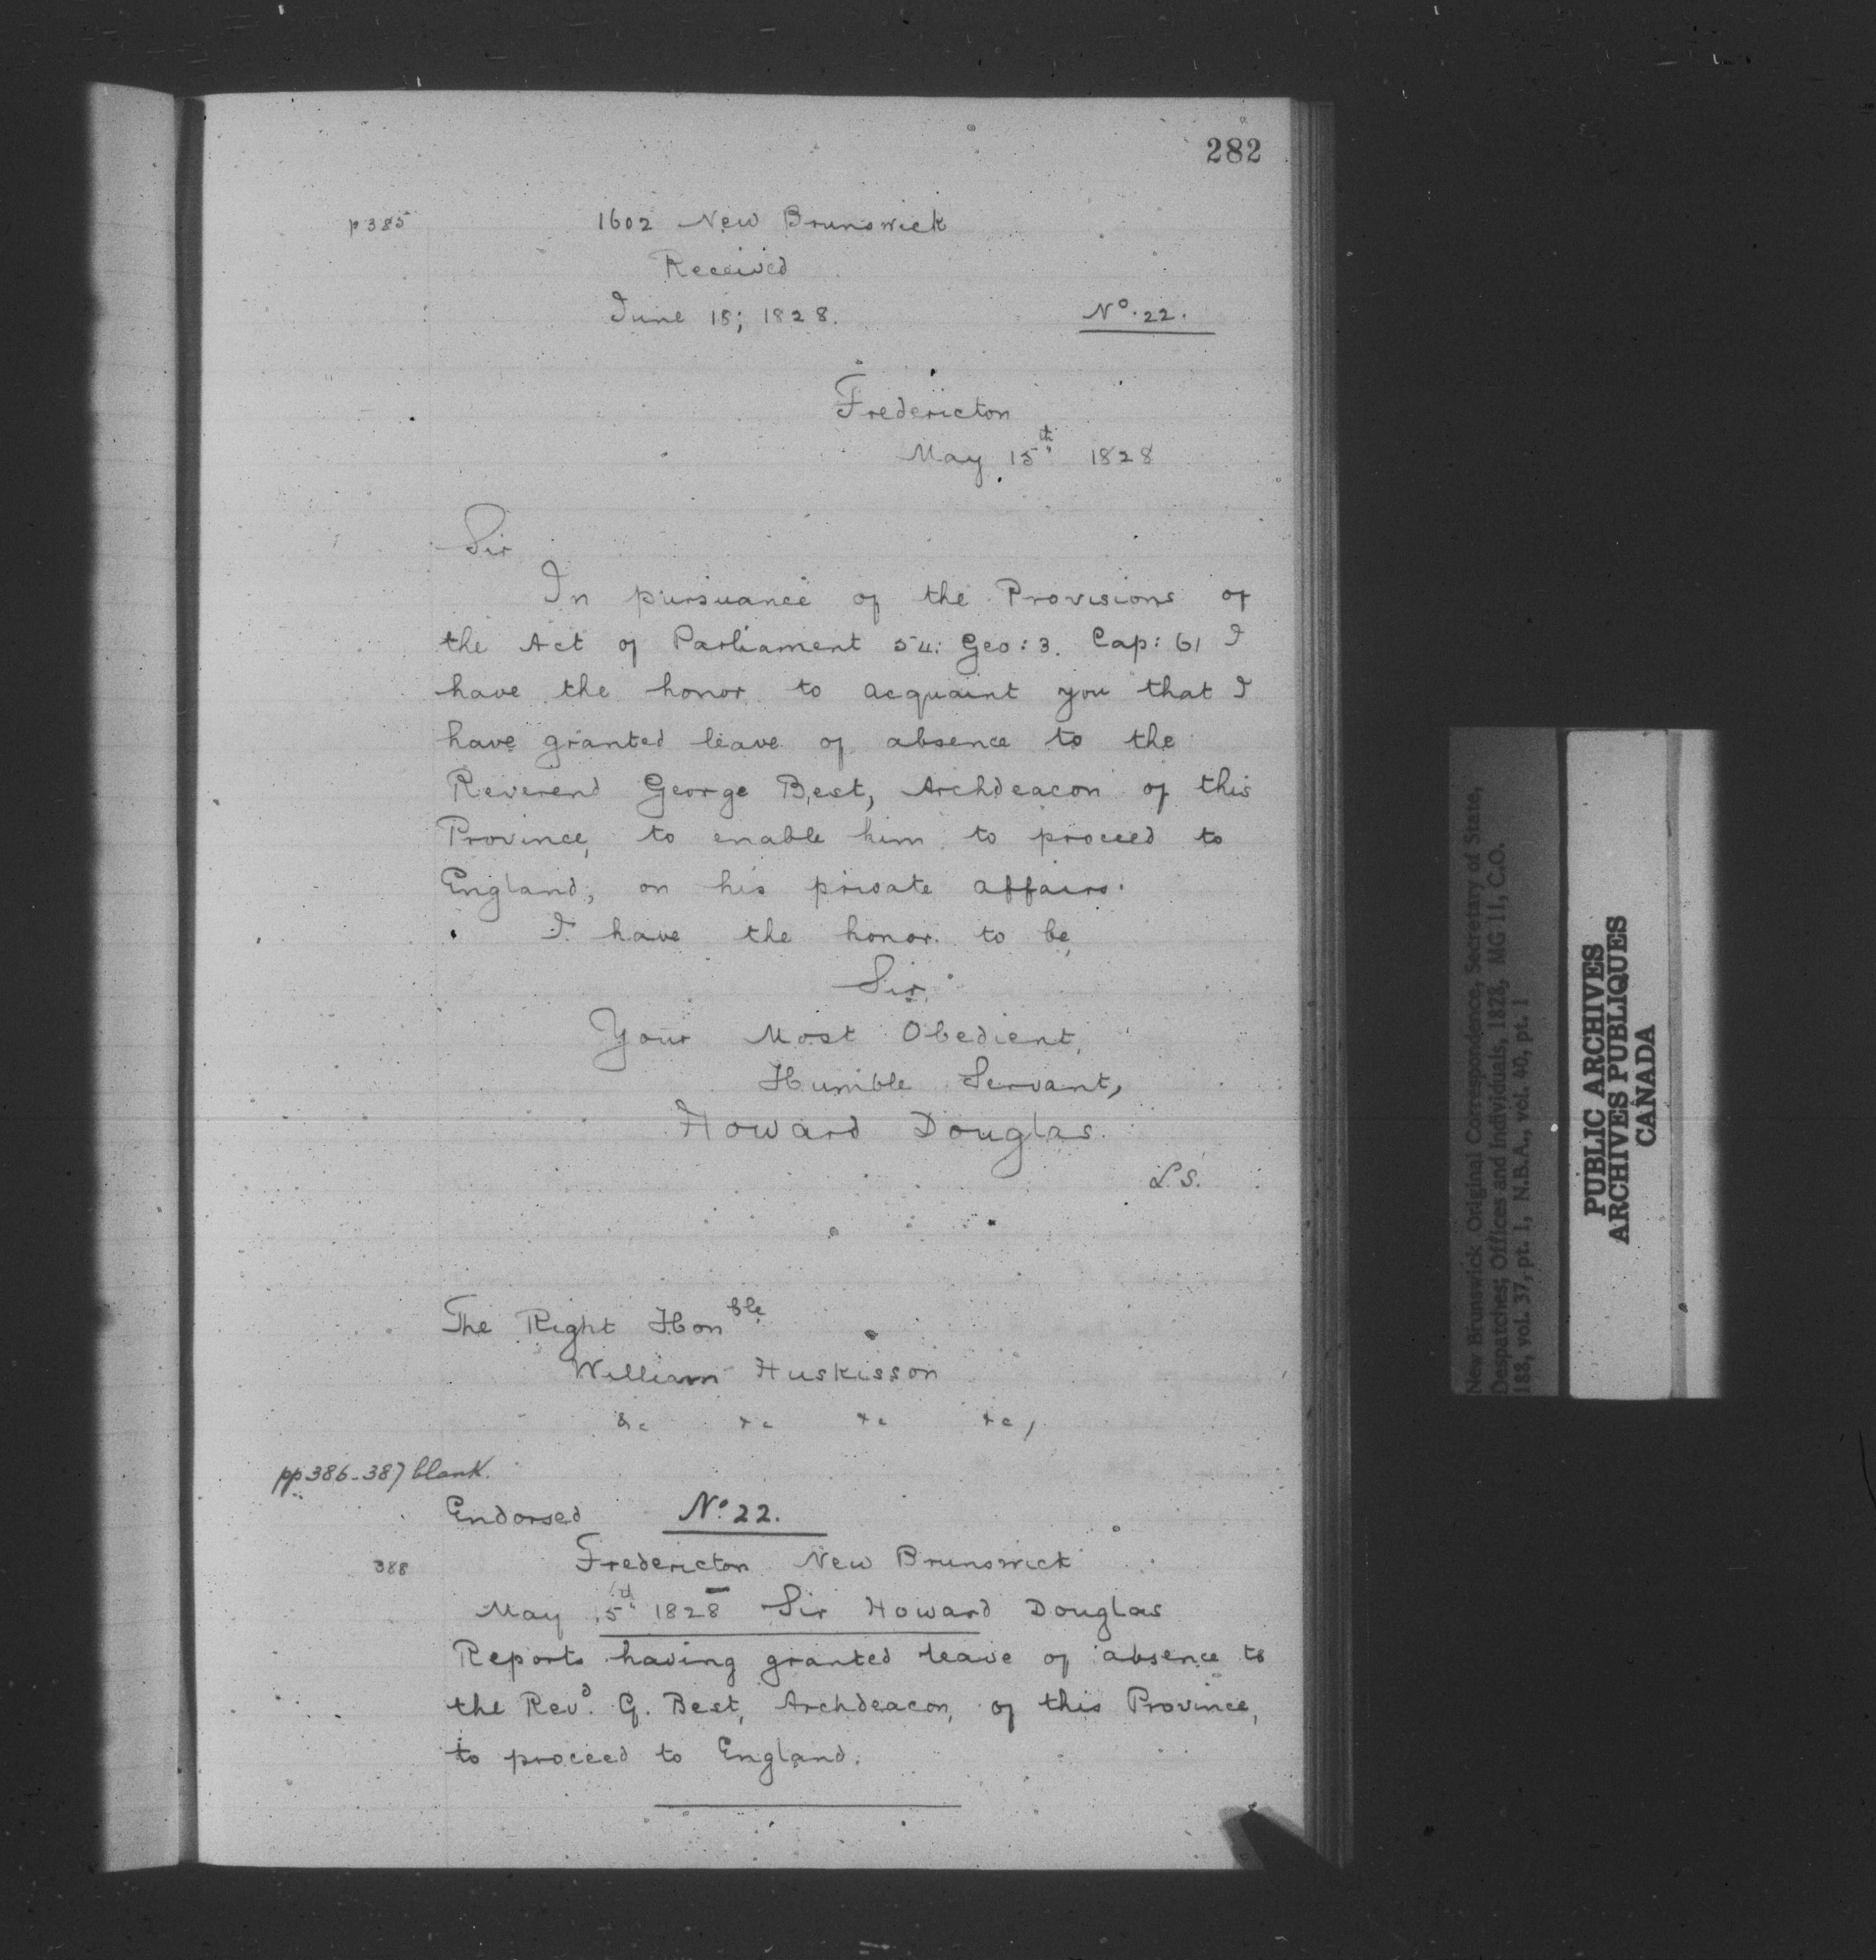 282
p 385
1602 New Brunswick
Received
June 15; 1828.
No. 22.
Fredericton
May 15th 1828
Sir
In pursuance of the Provisions of
the Act of Parliament 54: Geo: 3. Cap: 61 I
have the honor to acquaint you that I
have granted leave of absence to the
Reverend George Best, Archdeacon of this
Province, to enable him to proceed to
England, on his private affairs.
I have the honor to be,
Sir,
Your Most Obedient,
Humble Servant,
Howard Douglas.
L.S.
The Right Honble
William Huskisson
&c &c &c &c,
pp 386-387 blank.
Endorsed No. 22.
388
Fredericton New Brunswick
May 1828 Sir Howard Douglas
Reports having granted leave of absence to
the Revd. G. Best, Archdeacon, of this Province,
to proceed to England.
New Brunswick Original Correspondence, Secretary of State,
Despatches; Offices and Individuals, 1828, MG 11, C.O.
188, vol. 37, pt. 1, N.B.A., vol. 40, pt. 1
PUBLIC ARCHIVES
ARCHIVES PUBLIQUES
CANADA